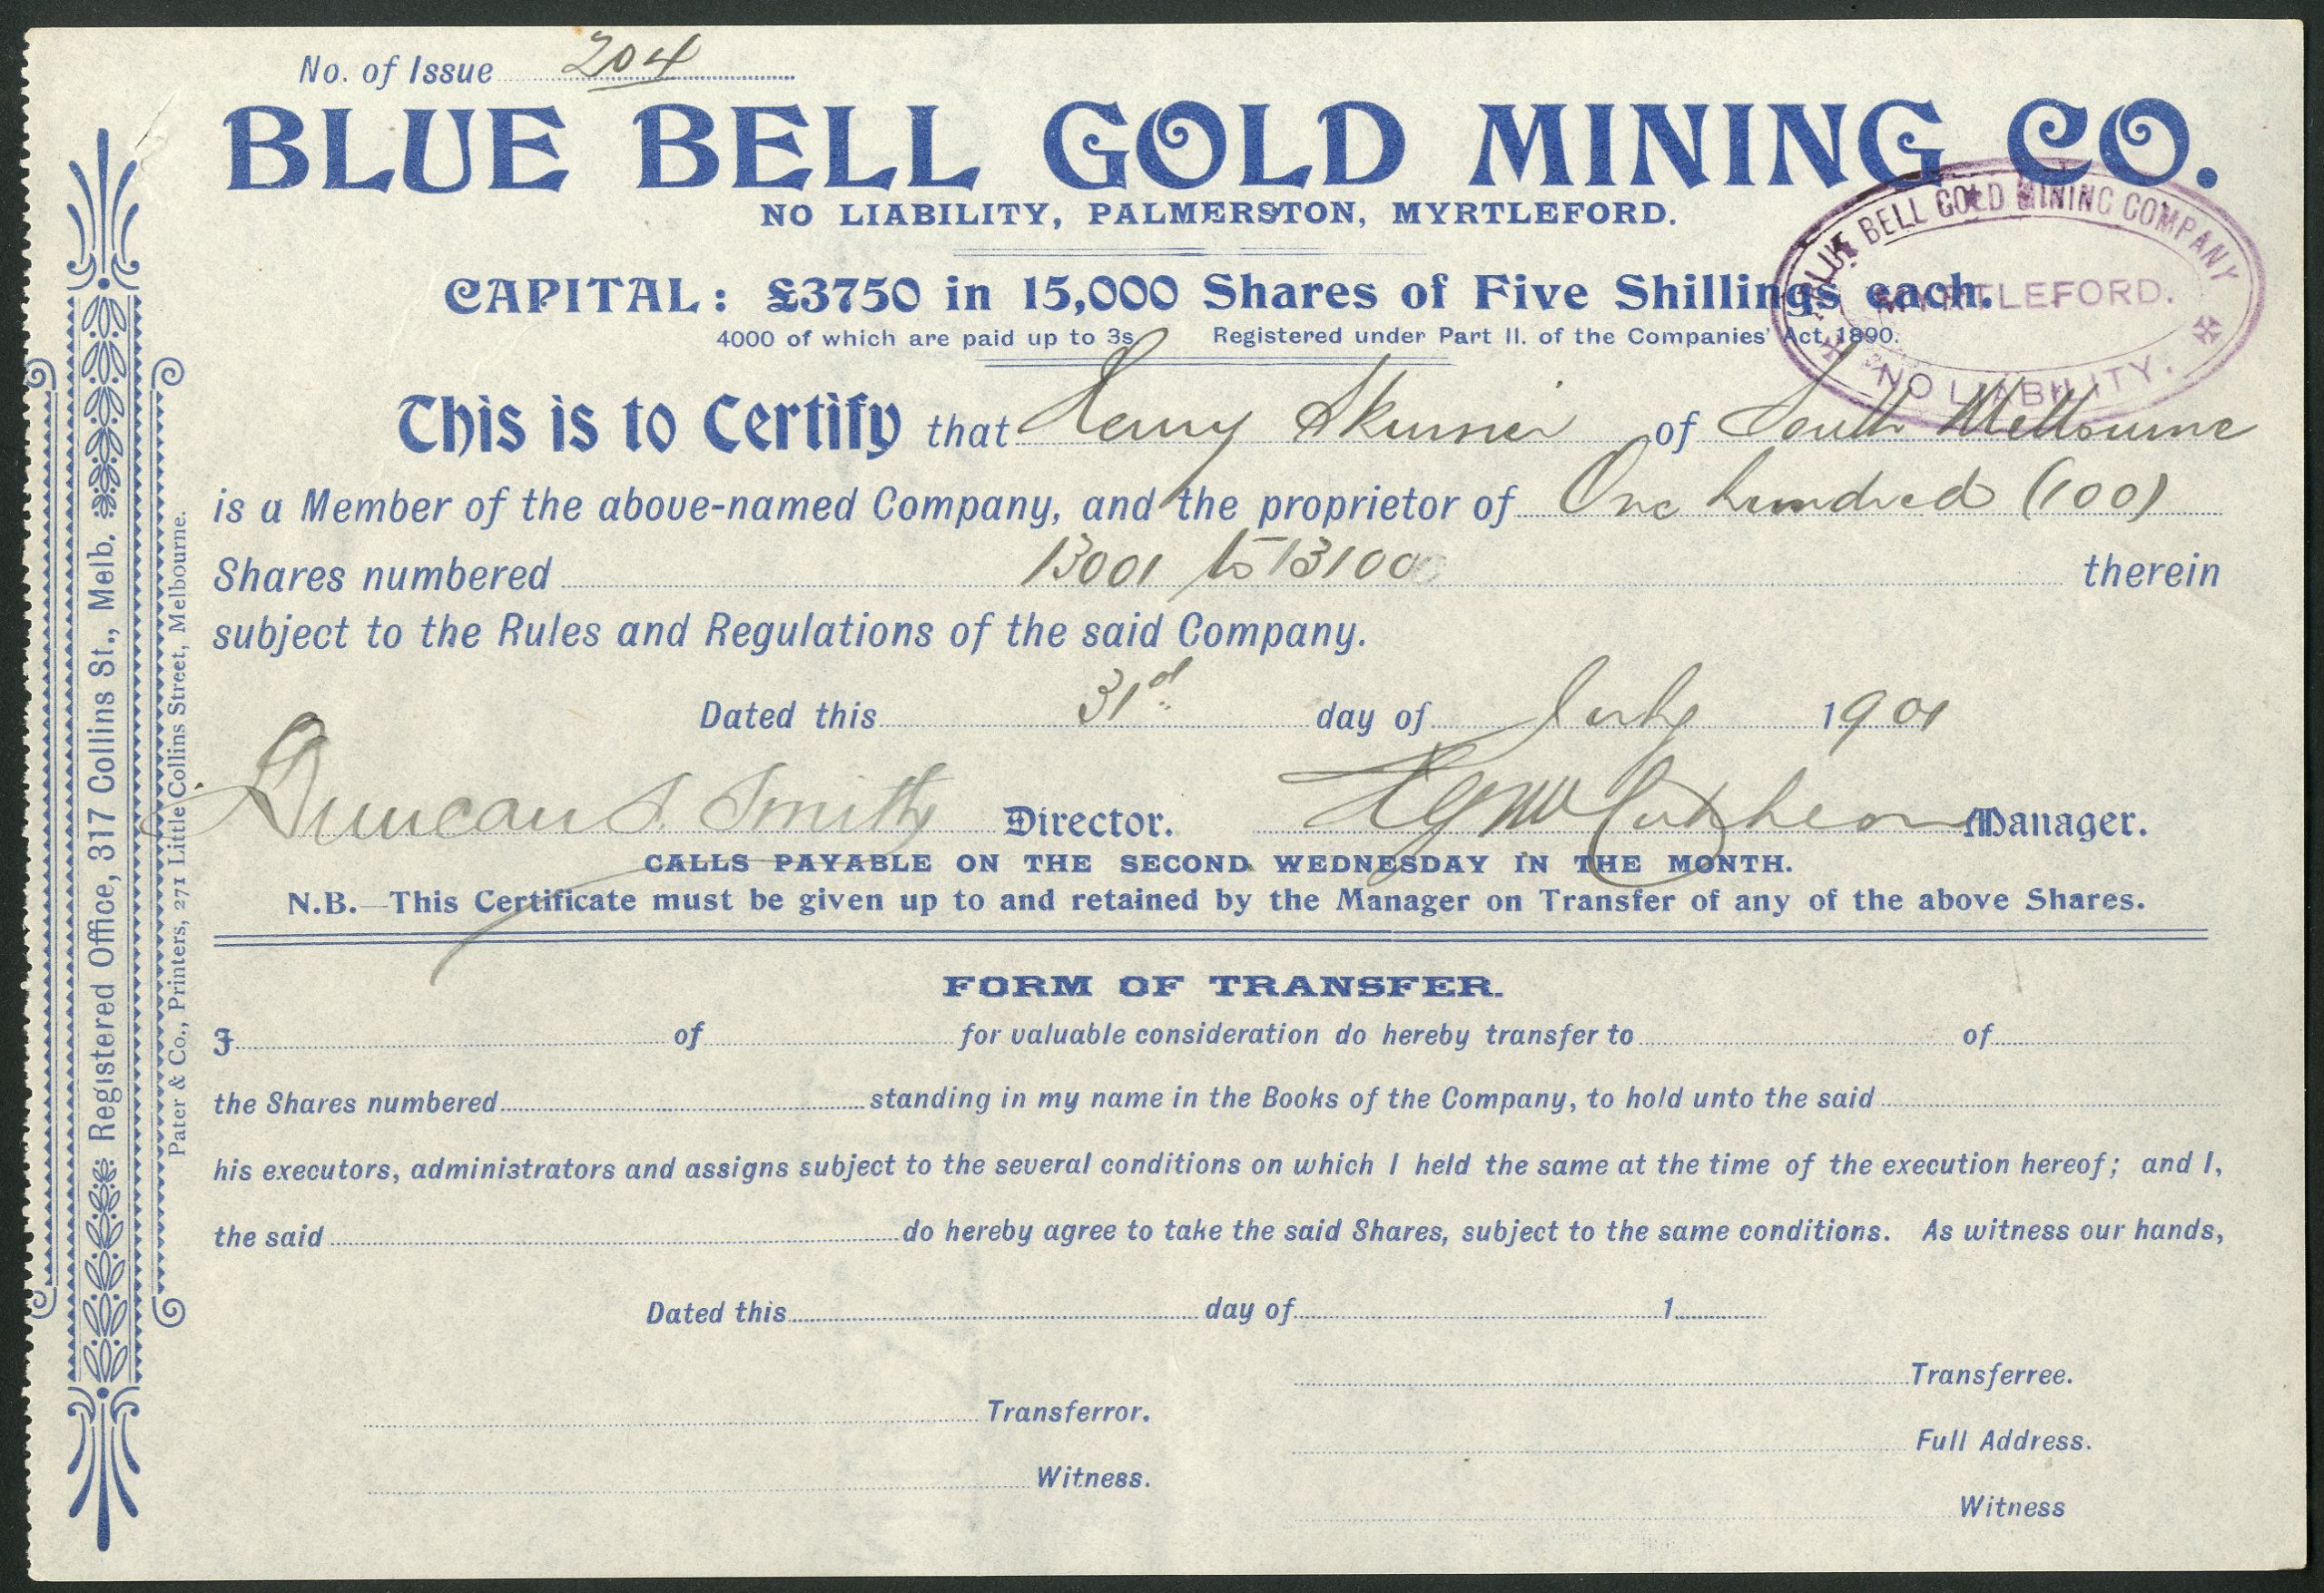 No. of Issue 204
BLUE BELL GOLD MINING CO.
NO LIABILITY, PALMERSTON, MYRTLEFORD.
BLUE BELL GOLD MINING COMPANY
MYRTLEFORD.
NO LIABILITY.
CAPITAL: £3750 in 15,000 Shares of Five Shillings each.
4000 of which are paid up to 3s. Registered under Part II. of the Companies' Act, 1890.
This is to Certify that Henry Skurrier of South Melbourne
is a Member of the above-named Company, and the proprietor of One hundred (100)
Shares numbered 13001 to 13100 therein
subject to the Rules and Regulations of the said Company.
Dated this 31d day of July 1901
Duncan S. Smith Director. Manager.
CALLS PAYABLE ON THE SECOND WEDNESDAY IN THE MONTH.
N.B.—This Certificate must be given up to and retained by the Manager on Transfer of any of the above Shares.
FORM OF TRANSFER.
I of for valuable consideration do hereby transfer to of
the Shares numbered standing in my name in the Books of the Company, to hold unto the said
his executors, administrators and assigns subject to the several conditions on which I held the same at the time of the execution hereof; and I,
the said do hereby agree to take the said Shares, subject to the same conditions. As witness our hands,
Dated this day of 1
Transferree.
Transferror.
Full Address.
Witness.
Witness
Registered Office, 317 Collins St., Melb.
Pater & Co., Printers, 271 Little Collins Street, Melbourne.